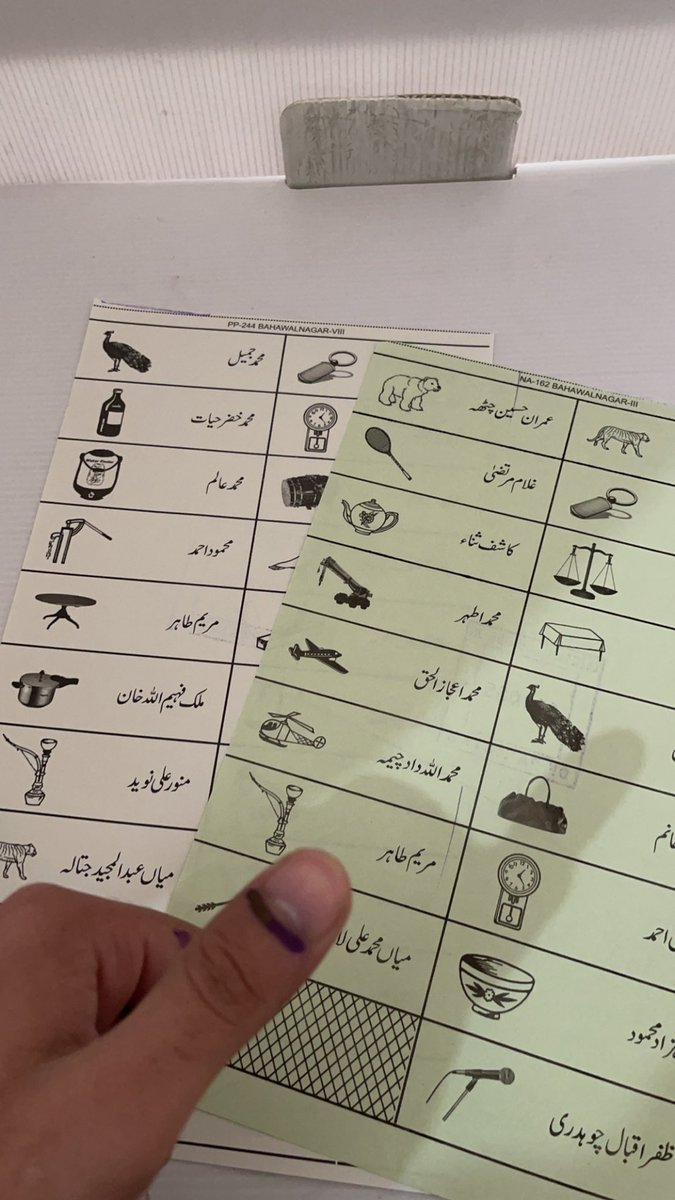 PP-244 BAHAWALNAGAR-VIII
محمد جمیل
محمد خضر حیات
محمد عالم
محمود احمد
مریم طاہر
ملک فہیم اللہ خان
منور علی نوید
میاں عبدالمجید جتالہ
NA-162 BAHAWALNAGAR-III
عمران حسین چٹھہ
غلام مرتضیٰ
کاشف ثناء
محمد اطہر
محمد اعجاز الحق
محمد اللہ داد چیمہ
مریم طاہر
میاں محمد علی لا
احمد
محمود
ظفر اقبال چوہدری